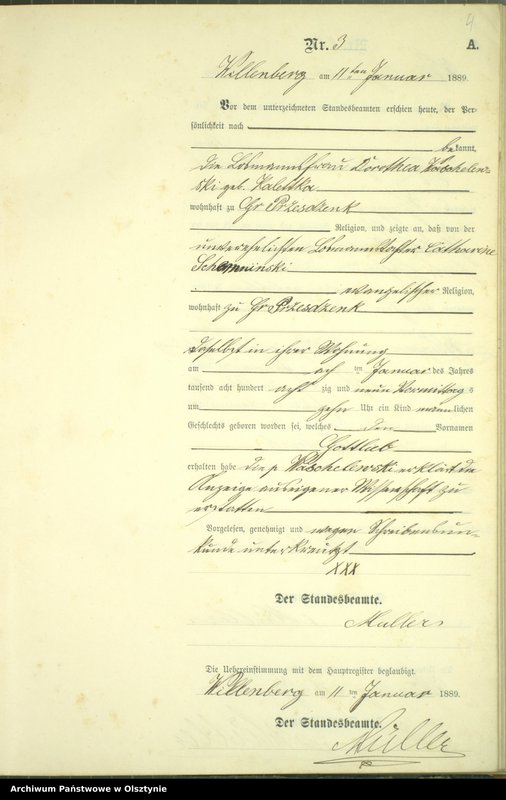 4
Nr. 3
A.
Willenberg am 11ten Januar 1889.
Vor dem unterzeichneten Standesbeamten erschien heute, der Per-
sönlichkeit nach
bekannt,
die Losmannsfrau Dorothea
ski geb. Kalettka
wohnhaft zu Gr Przesdzenk
Religion, und zeigte an, daß von der
unverehelichten Losmannstochter Catharine
evangelischer Religion,
wohnhaft zu Gr Przesdzenk
daselbst in ihrer Wohnung
am ach ten Januar des Jahres
tausend acht hundert acht zig und neun Vormittag s
um zehn Uhr ein Kind männlichen
Geschlechts geboren worden sei, welches den Vornamen
Gottlieb
erhalten habe die p. erklärt die
Anzeige aus eigener Wissenschaft zu
erstatten
Vorgelesen, genehmigt und wegen Schreibenun-
kunde unterkreutzt
XXX
Der Standesbeamte.
Müller
Die Uebereinstimmung mit dem Hauptregister beglaubigt.
Willenberg am 11 ten Januar 1889.
Der Standesbeamte.
Müller
Archiwum Państwowe w Olsztynie